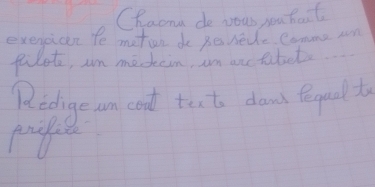 Chacun de vous souhaite
exerçicer le métier de ses rêve comme un
pilote, un médecin, un architecte ....
Rédige un cout texte dans lequel tu
préfère